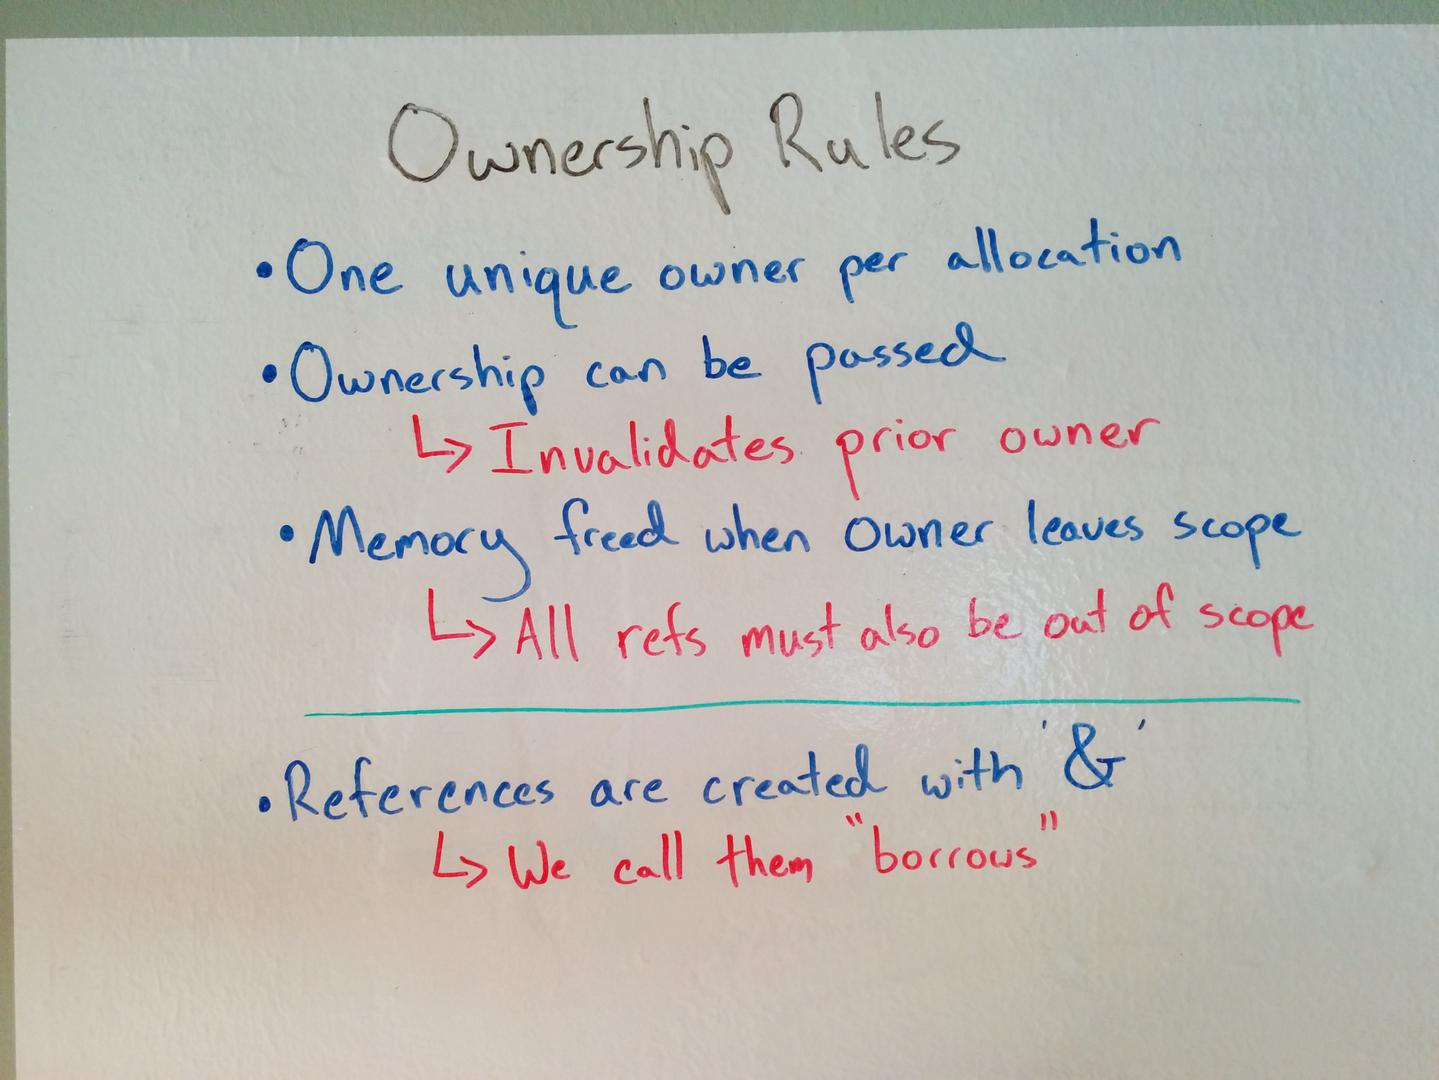 Ownership Rules
• One unique owner per allocation
• Ownership can be passed
↳ Invalidates prior owner
• Memory freed when owner leaves scope
↳ All refs must also be out of scope
• References are created with '&'
↳ We call them "borrows"